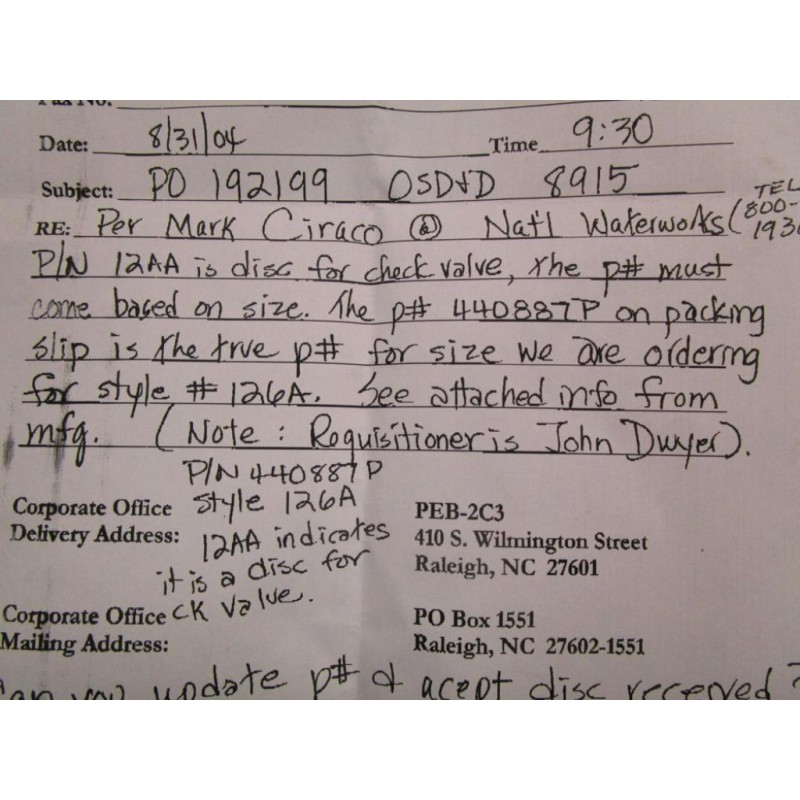 Fax No.
Date: 8/31/04 Time 9:30
Subject: PO 192199 OSD&D 8915
TEL
RE: Per Mark Ciraco @ Nat'l Waterworks (800-
193
P/N 12AA is disc for check valve, the p# must
come based on size. The p# 440887P on packing
slip is the true p# for size we are ordering
for style # 126A. See attached info from
mfg. (Note: Requisitioner is John Dwyer).
P/N 440887P
Corporate Office style 126A PEB-2C3
Delivery Address: 12AA indicates 410 S. Wilmington Street
it is a disc for Raleigh, NC 27601
Corporate Office ck valve. PO Box 1551
Mailing Address: Raleigh, NC 27602-1551
you update p# & acept disc received?